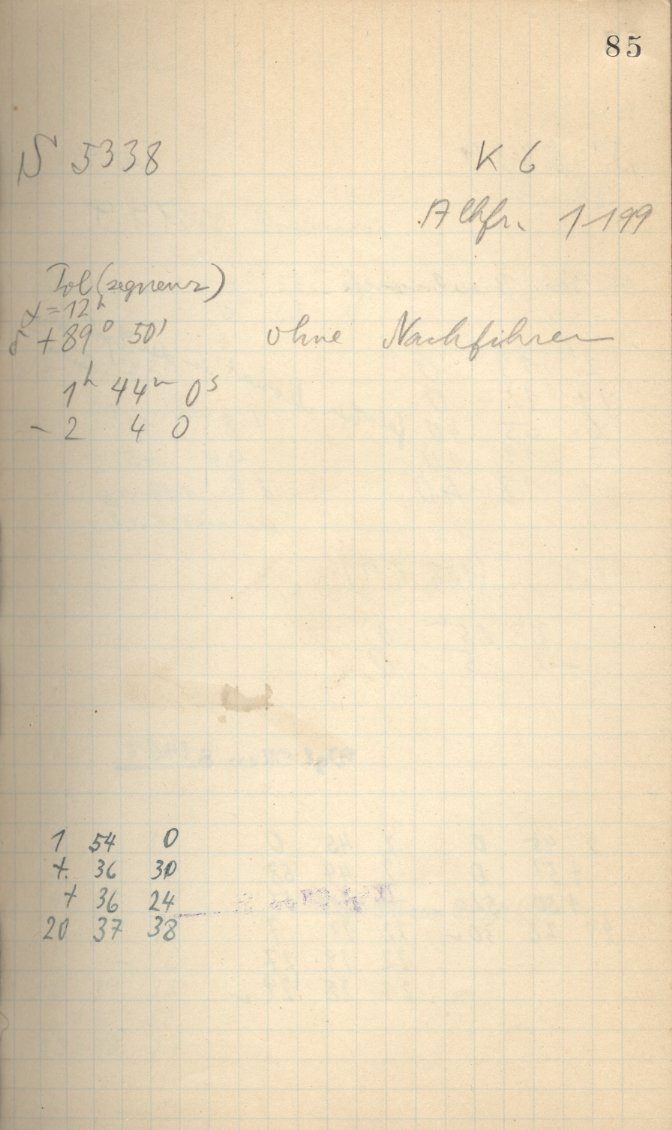 85
S 5338 K 6
1-199
Pol (sequenz)
α = 12ʰ
δ +89° 50' ohne Nachführen
1ʰ 44ᵐ 0ˢ
- 2 4 0
1 54 0
+ 36 30
+ 36 24
20 37 38